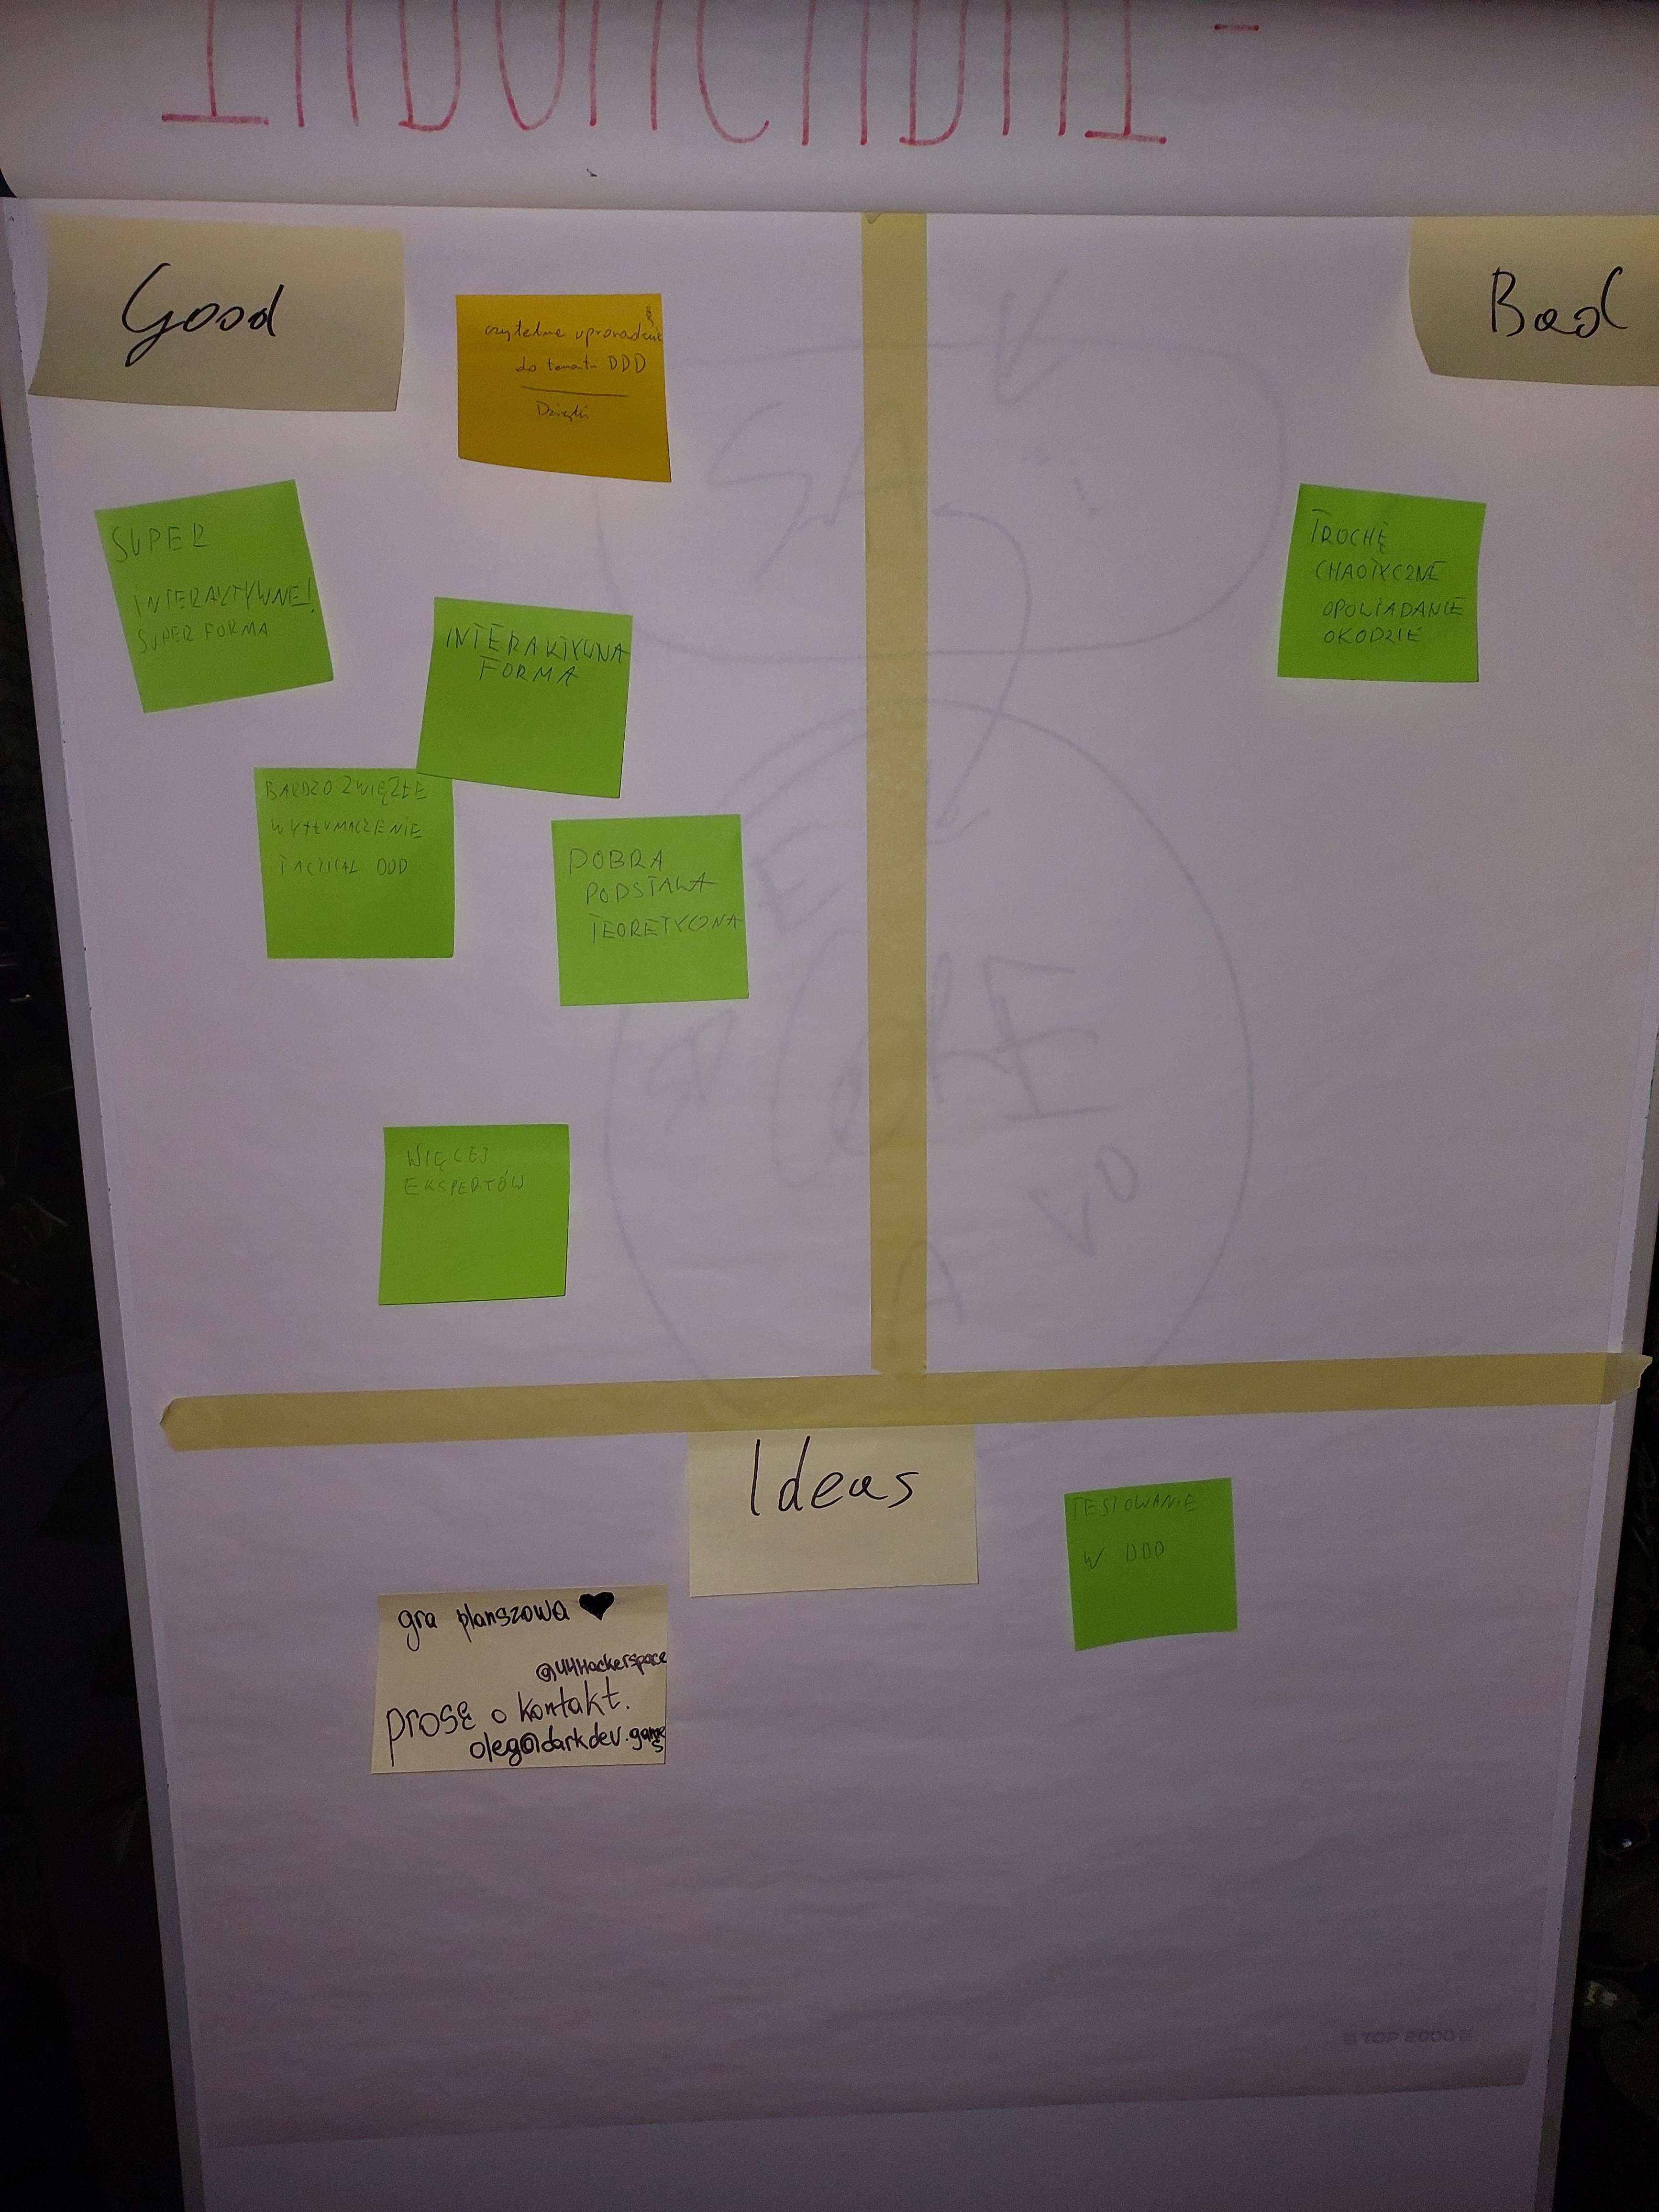 Good
Bad
czytelne wprowadzenie
do tematu DDD
Dzięki
SUPER
INTERAKTYWNE!
SUPER FORMA
INTERAKTYWNA
FORMA
BARDZO ZWIĘZŁE
WYTŁUMACZENIE
TACTICAL DDD
DOBRA
PODSTAWA
TEORETYCZNA
WIĘCEJ
EKSPERTÓW
TROCHĘ
CHAOTYCZNE
OPOWIADANIE
O KODZIE
Ideas
TESTOWANIE
W DDD
gra planszowa
@44Hackerspace
proszę o kontakt.
oleg@darkdev.games
TOP 2000